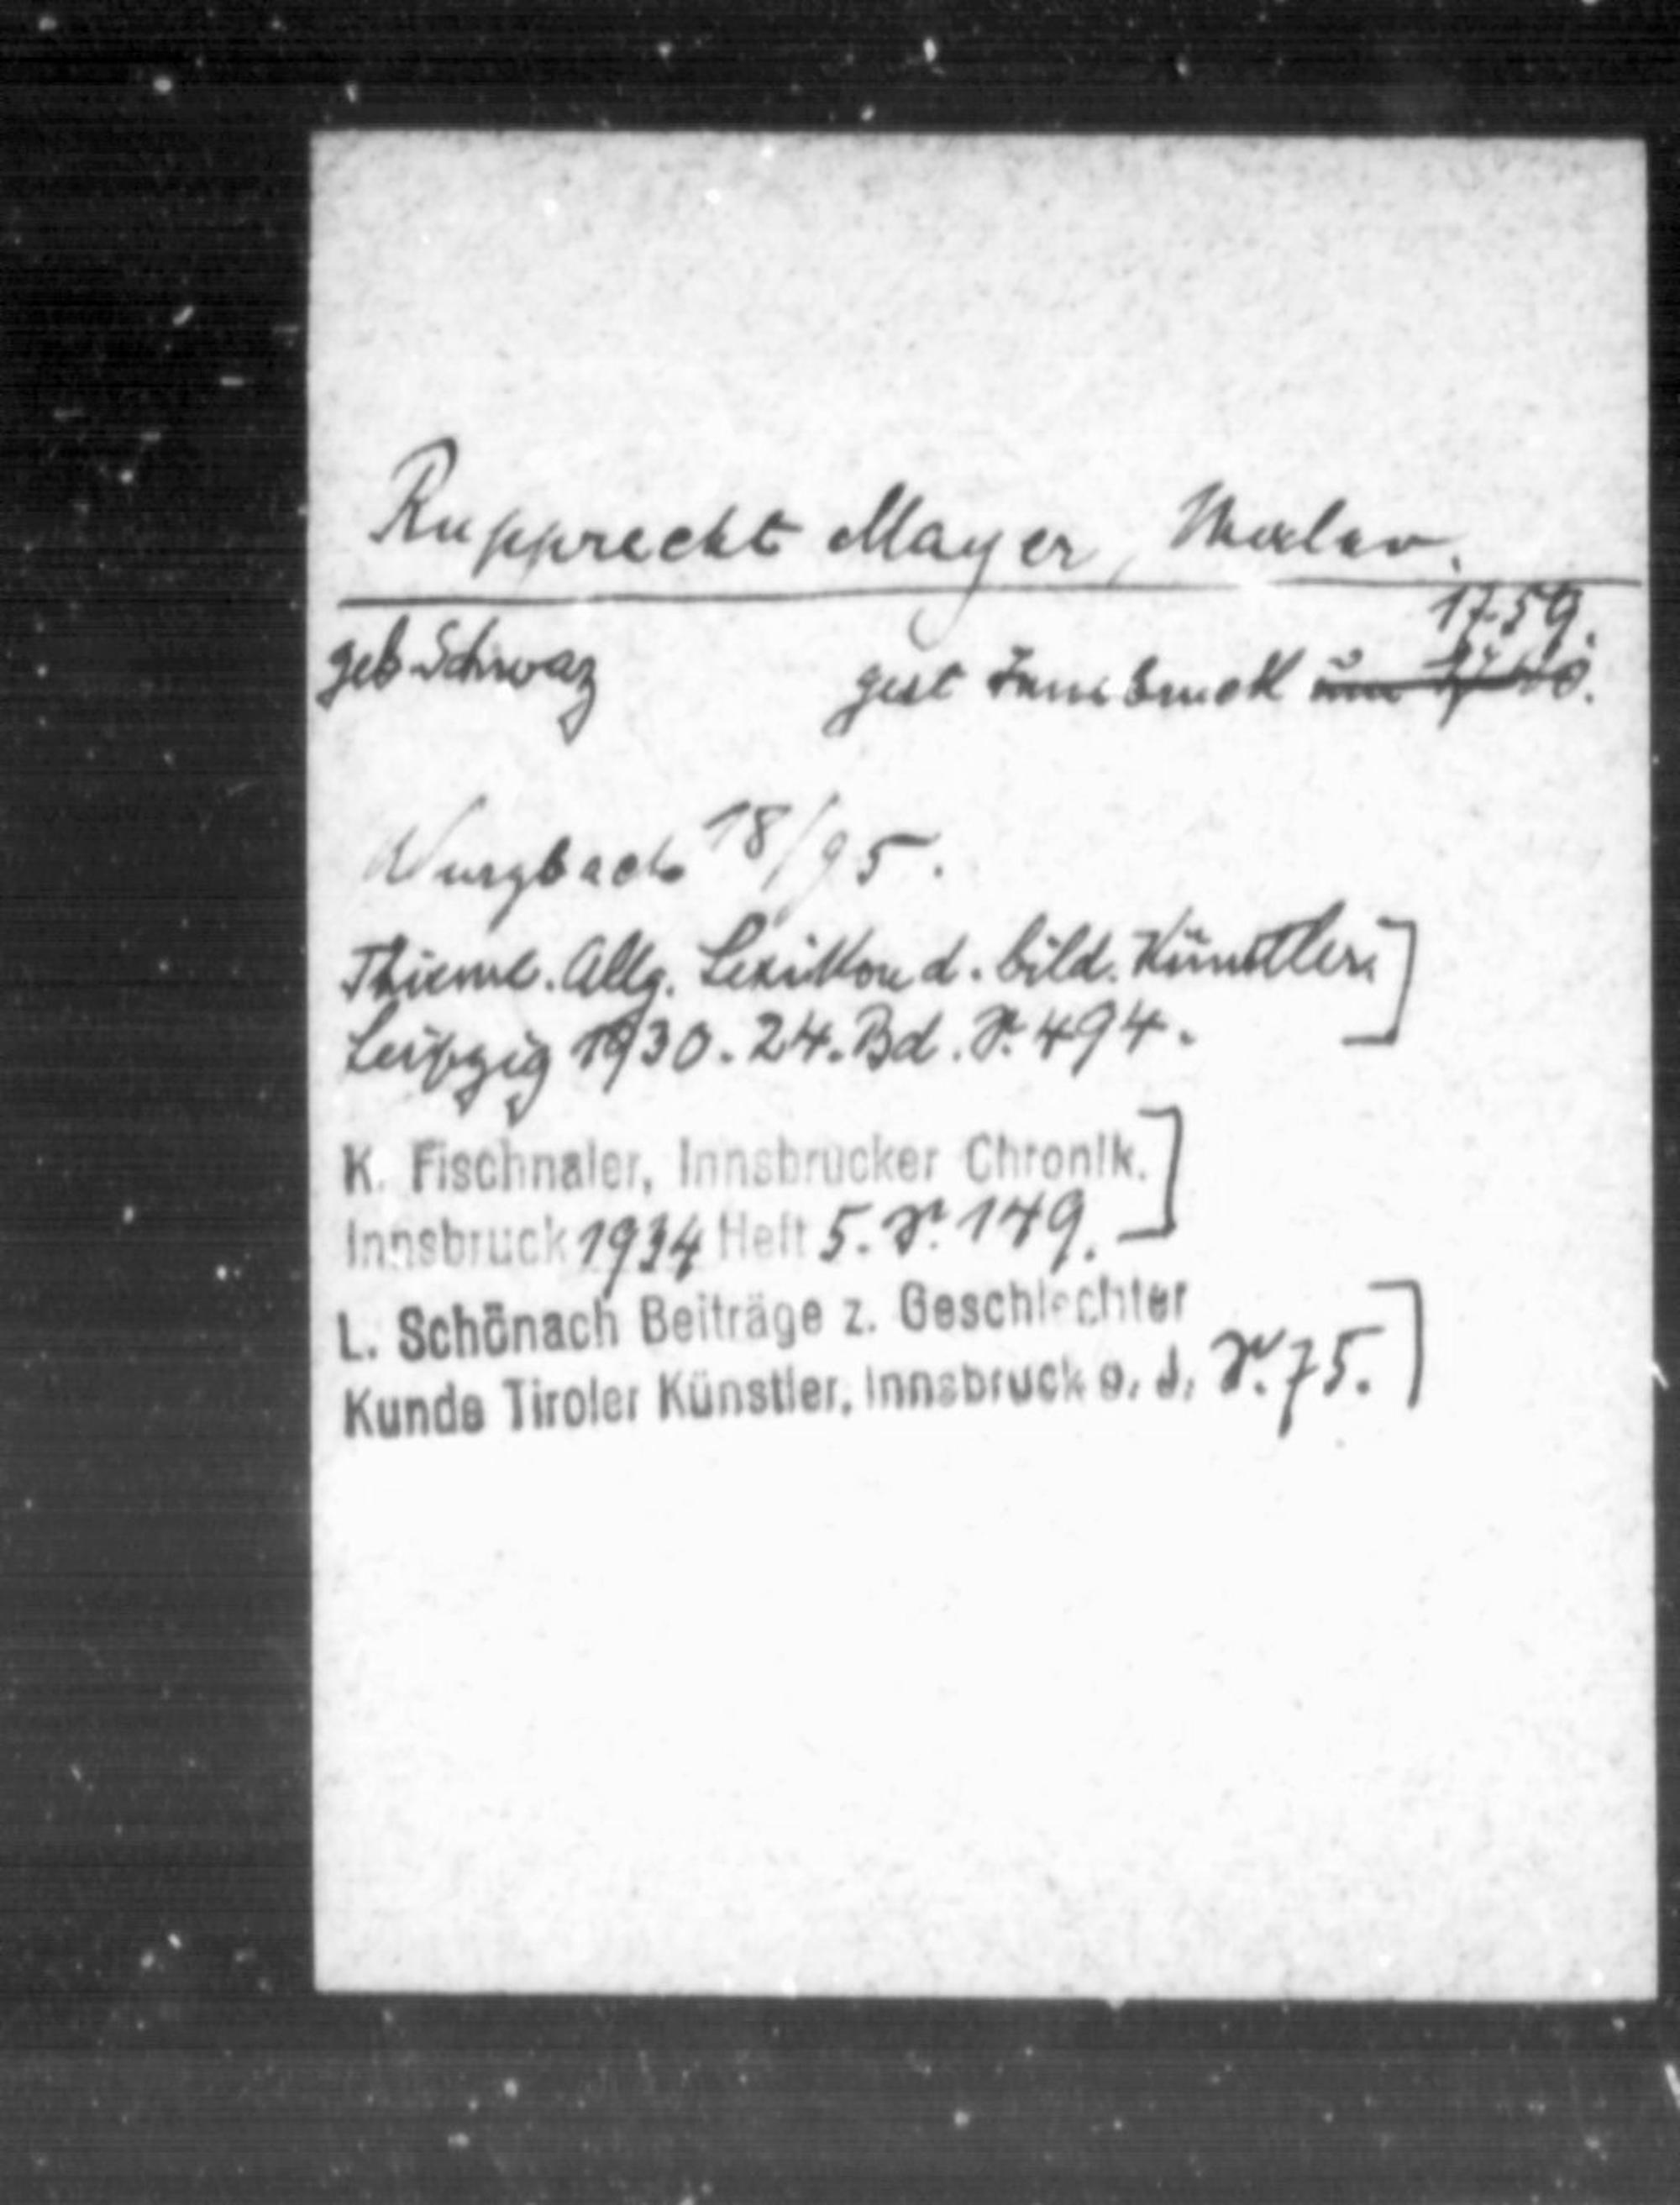 Rupprecht Mayer, Maler.
geb Schwaz gest Innsbruck 1759.
um 1760.
Wurzbach 18/95.
Thieme. Allg. Lexikon d. bild. Künstler.]
Leipzig 1930. 24. Bd. S. 494.
K. Fischnaler, Innsbrucker Chronik.]
Innsbruck 1934 Heft 5. S. 149.
L. Schönach Beiträge z. Geschlechter]
Kunde Tiroler Künstler, Innsbruck o. J. S. 75.